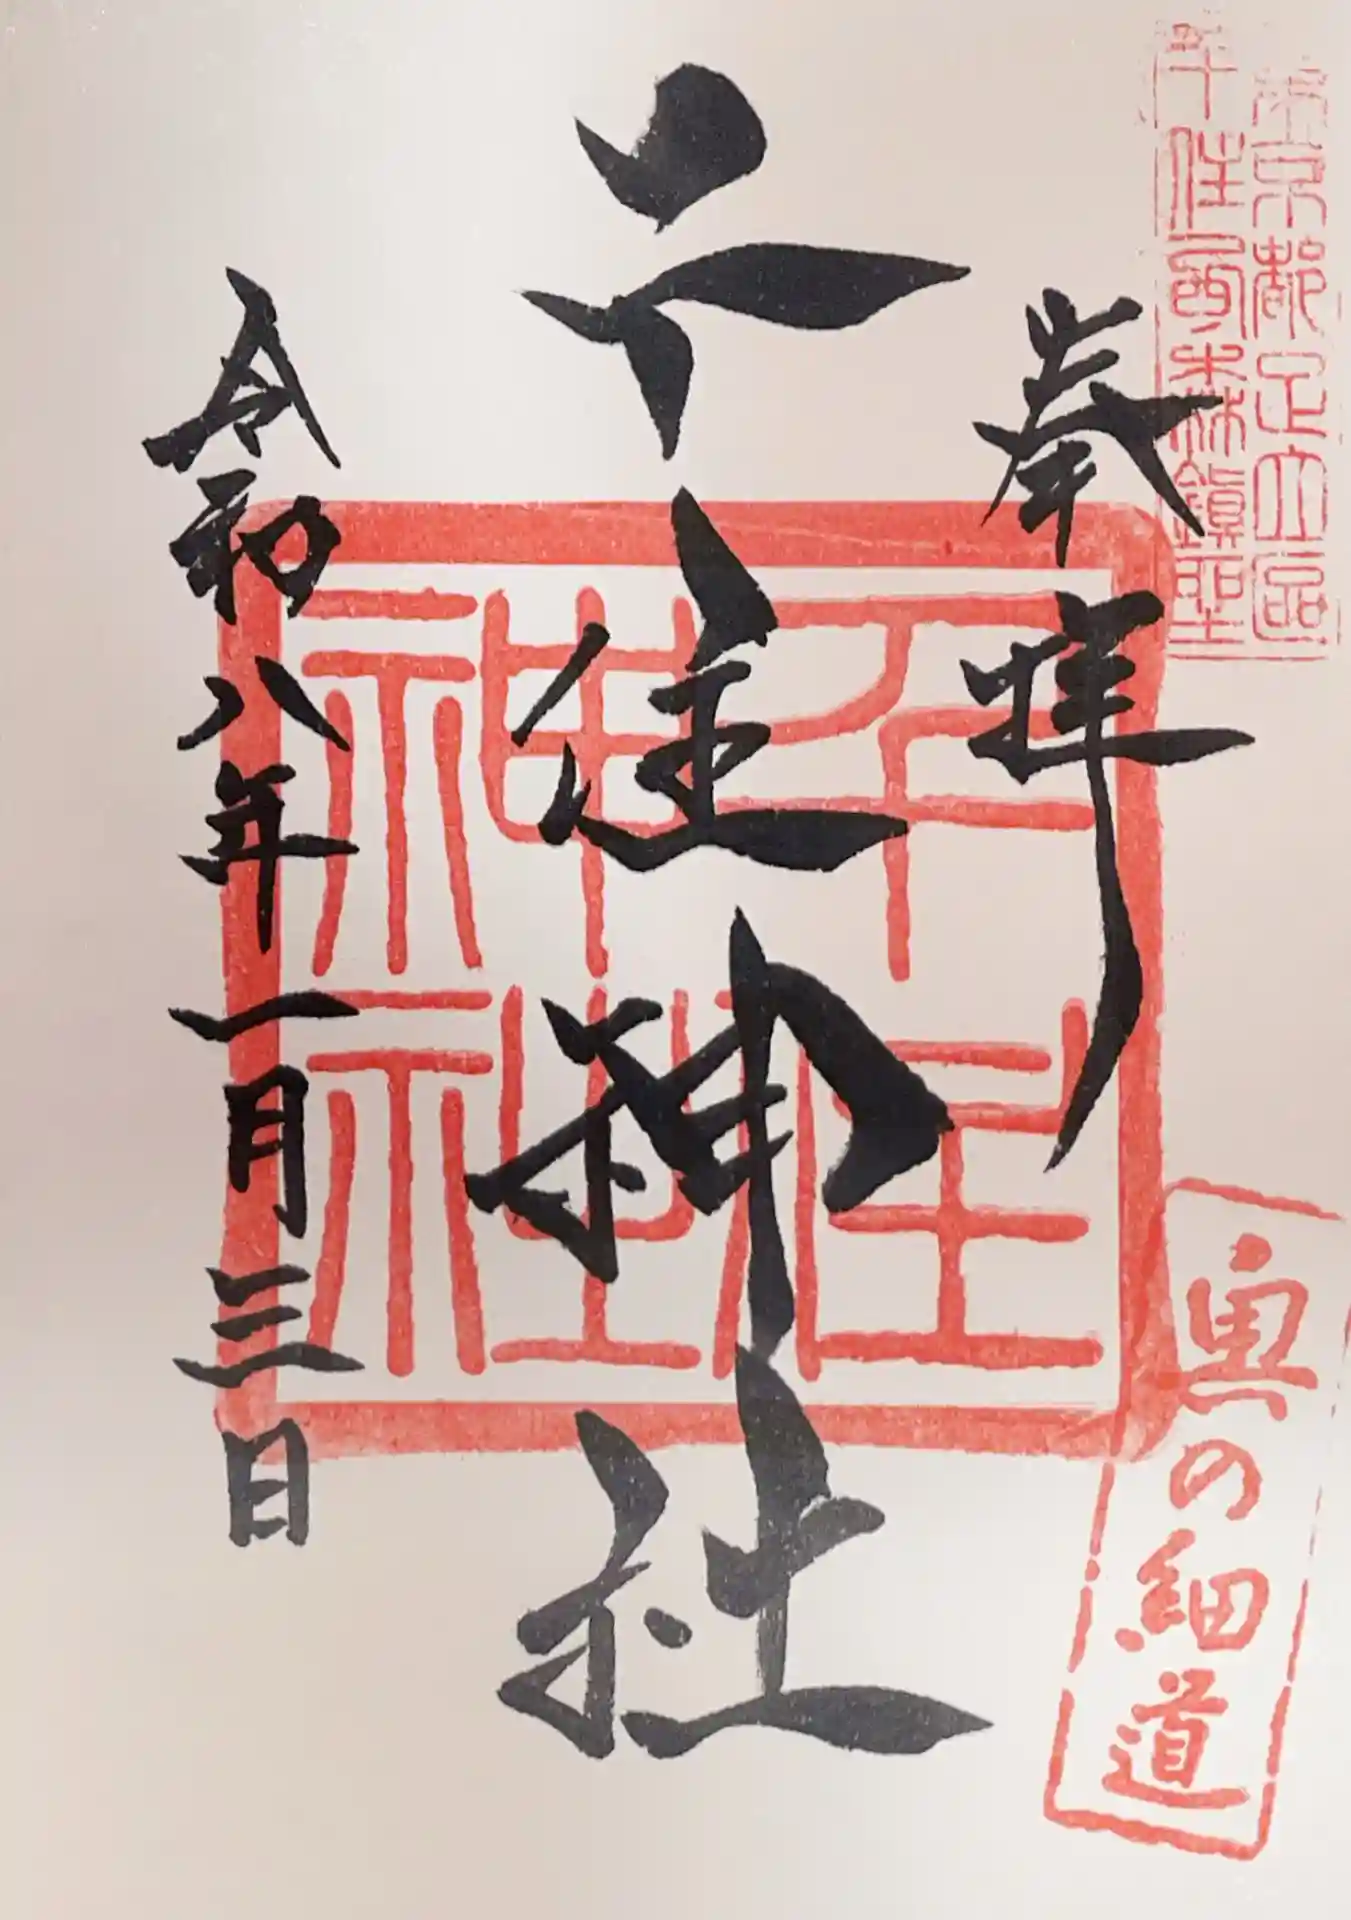 東京都足立区
千住西森鎮聖
奉拝
千住神社
千住神社
奥の細道
令和八年一月三日